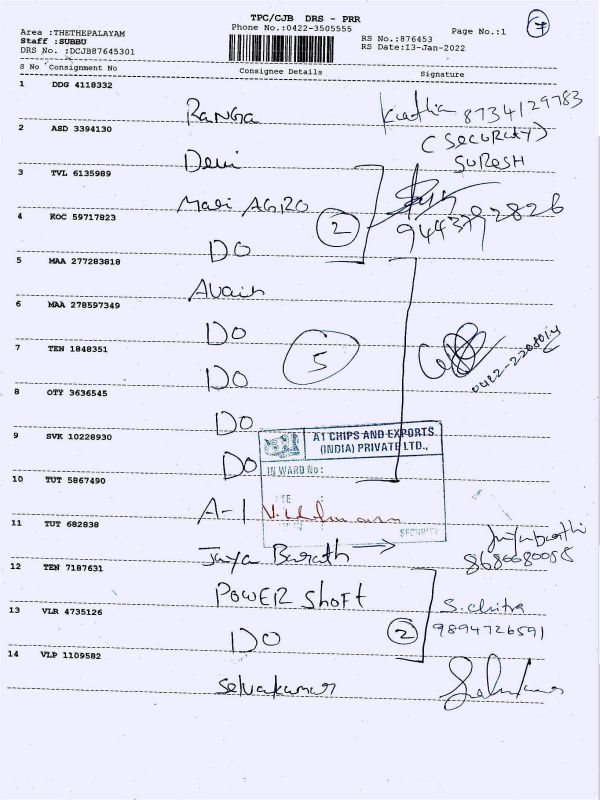 TPC/CJB DRS - PRR
Phone No.:0422-3505555
Page No.:1
7
Area :THETHEPALAYAM
Staff :SUBBU
DRS No. :DCJB87645301
RS No.:876453
RS Date:13-Jan-2022
S No Consignment No Consignee Details Signature
1 DDG 4118332
RANGA
8734129783
2 ASD 3394130
(SECURITY)
SURESH
Devi
3 TVL 6135989
Mari AGRO
2
9443792826
4 KOC 59717823
DO
5 MAA 277283818
6 MAA 278597349
DO
5
7 TEN 1848351
DO
8 OTY 3636545
DO
9 SVK 10228930
A1 CHIPS AND EXPORTS
(INDIA) PRIVATE LTD.,
DO
IN WARD No :
10 TUT 5867490
A-1
SECURITY
11 TUT 682838
Jaya Barath
8680080058
12 TEN 7187631
POWER Shoft
S. chitra
9894726591
13 VLR 4735126
DO
2
14 VLP 1109582
Selvakumar